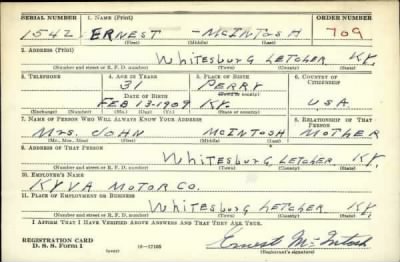 SERIAL NUMBER 1. NAME (Print) ORDER NUMBER
1542 ERNEST - McINTOSH 709
(First) (Middle) (Last)
2. ADDRESS (Print)
Whitesburg LETCHER KY.
(Number and street or R. F. D. number) (Town) (County) (State)
3. TELEPHONE 4. AGE IN YEARS 5. PLACE OF BIRTH 6. COUNTRY OF CITIZENSHIP
31 PERRY
DATE OF BIRTH (Town or county)
FEB 13-1909 KY. USA
(Exchange) (Number) (Mo.) (Day) (Yr.) (State or country)
7. NAME OF PERSON WHO WILL ALWAYS KNOW YOUR ADDRESS 8. RELATIONSHIP OF THAT PERSON
Mrs. JOHN McINTOSH MOTHER
(Mr., Mrs., Miss) (First) (Middle) (Last)
9. ADDRESS OF THAT PERSON
Whitesburg LETCHER KY.
(Number and street or R. F. D. number) (Town) (County) (State)
10. EMPLOYER'S NAME
KYVA MOTOR CO.
11. PLACE OF EMPLOYMENT OR BUSINESS
Whitesburg LETCHER KY.
(Number and street or R. F. D. number) (Town) (County) (State)
I AFFIRM THAT I HAVE VERIFIED ABOVE ANSWERS AND THAT THEY ARE TRUE.
REGISTRATION CARD
D. S. S. Form 1 16-17105 Ernest McIntosh
(Registrant's signature)